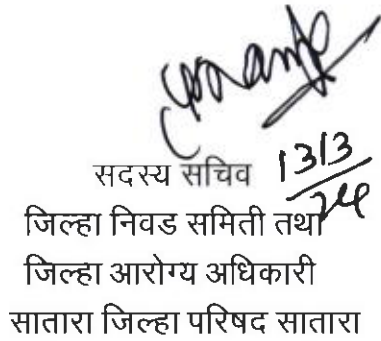 सदस्य सचिव
13/3/24
जिल्हा निवड समिती तथा
जिल्हा आरोग्य अधिकारी
सातारा जिल्हा परिषद सातारा